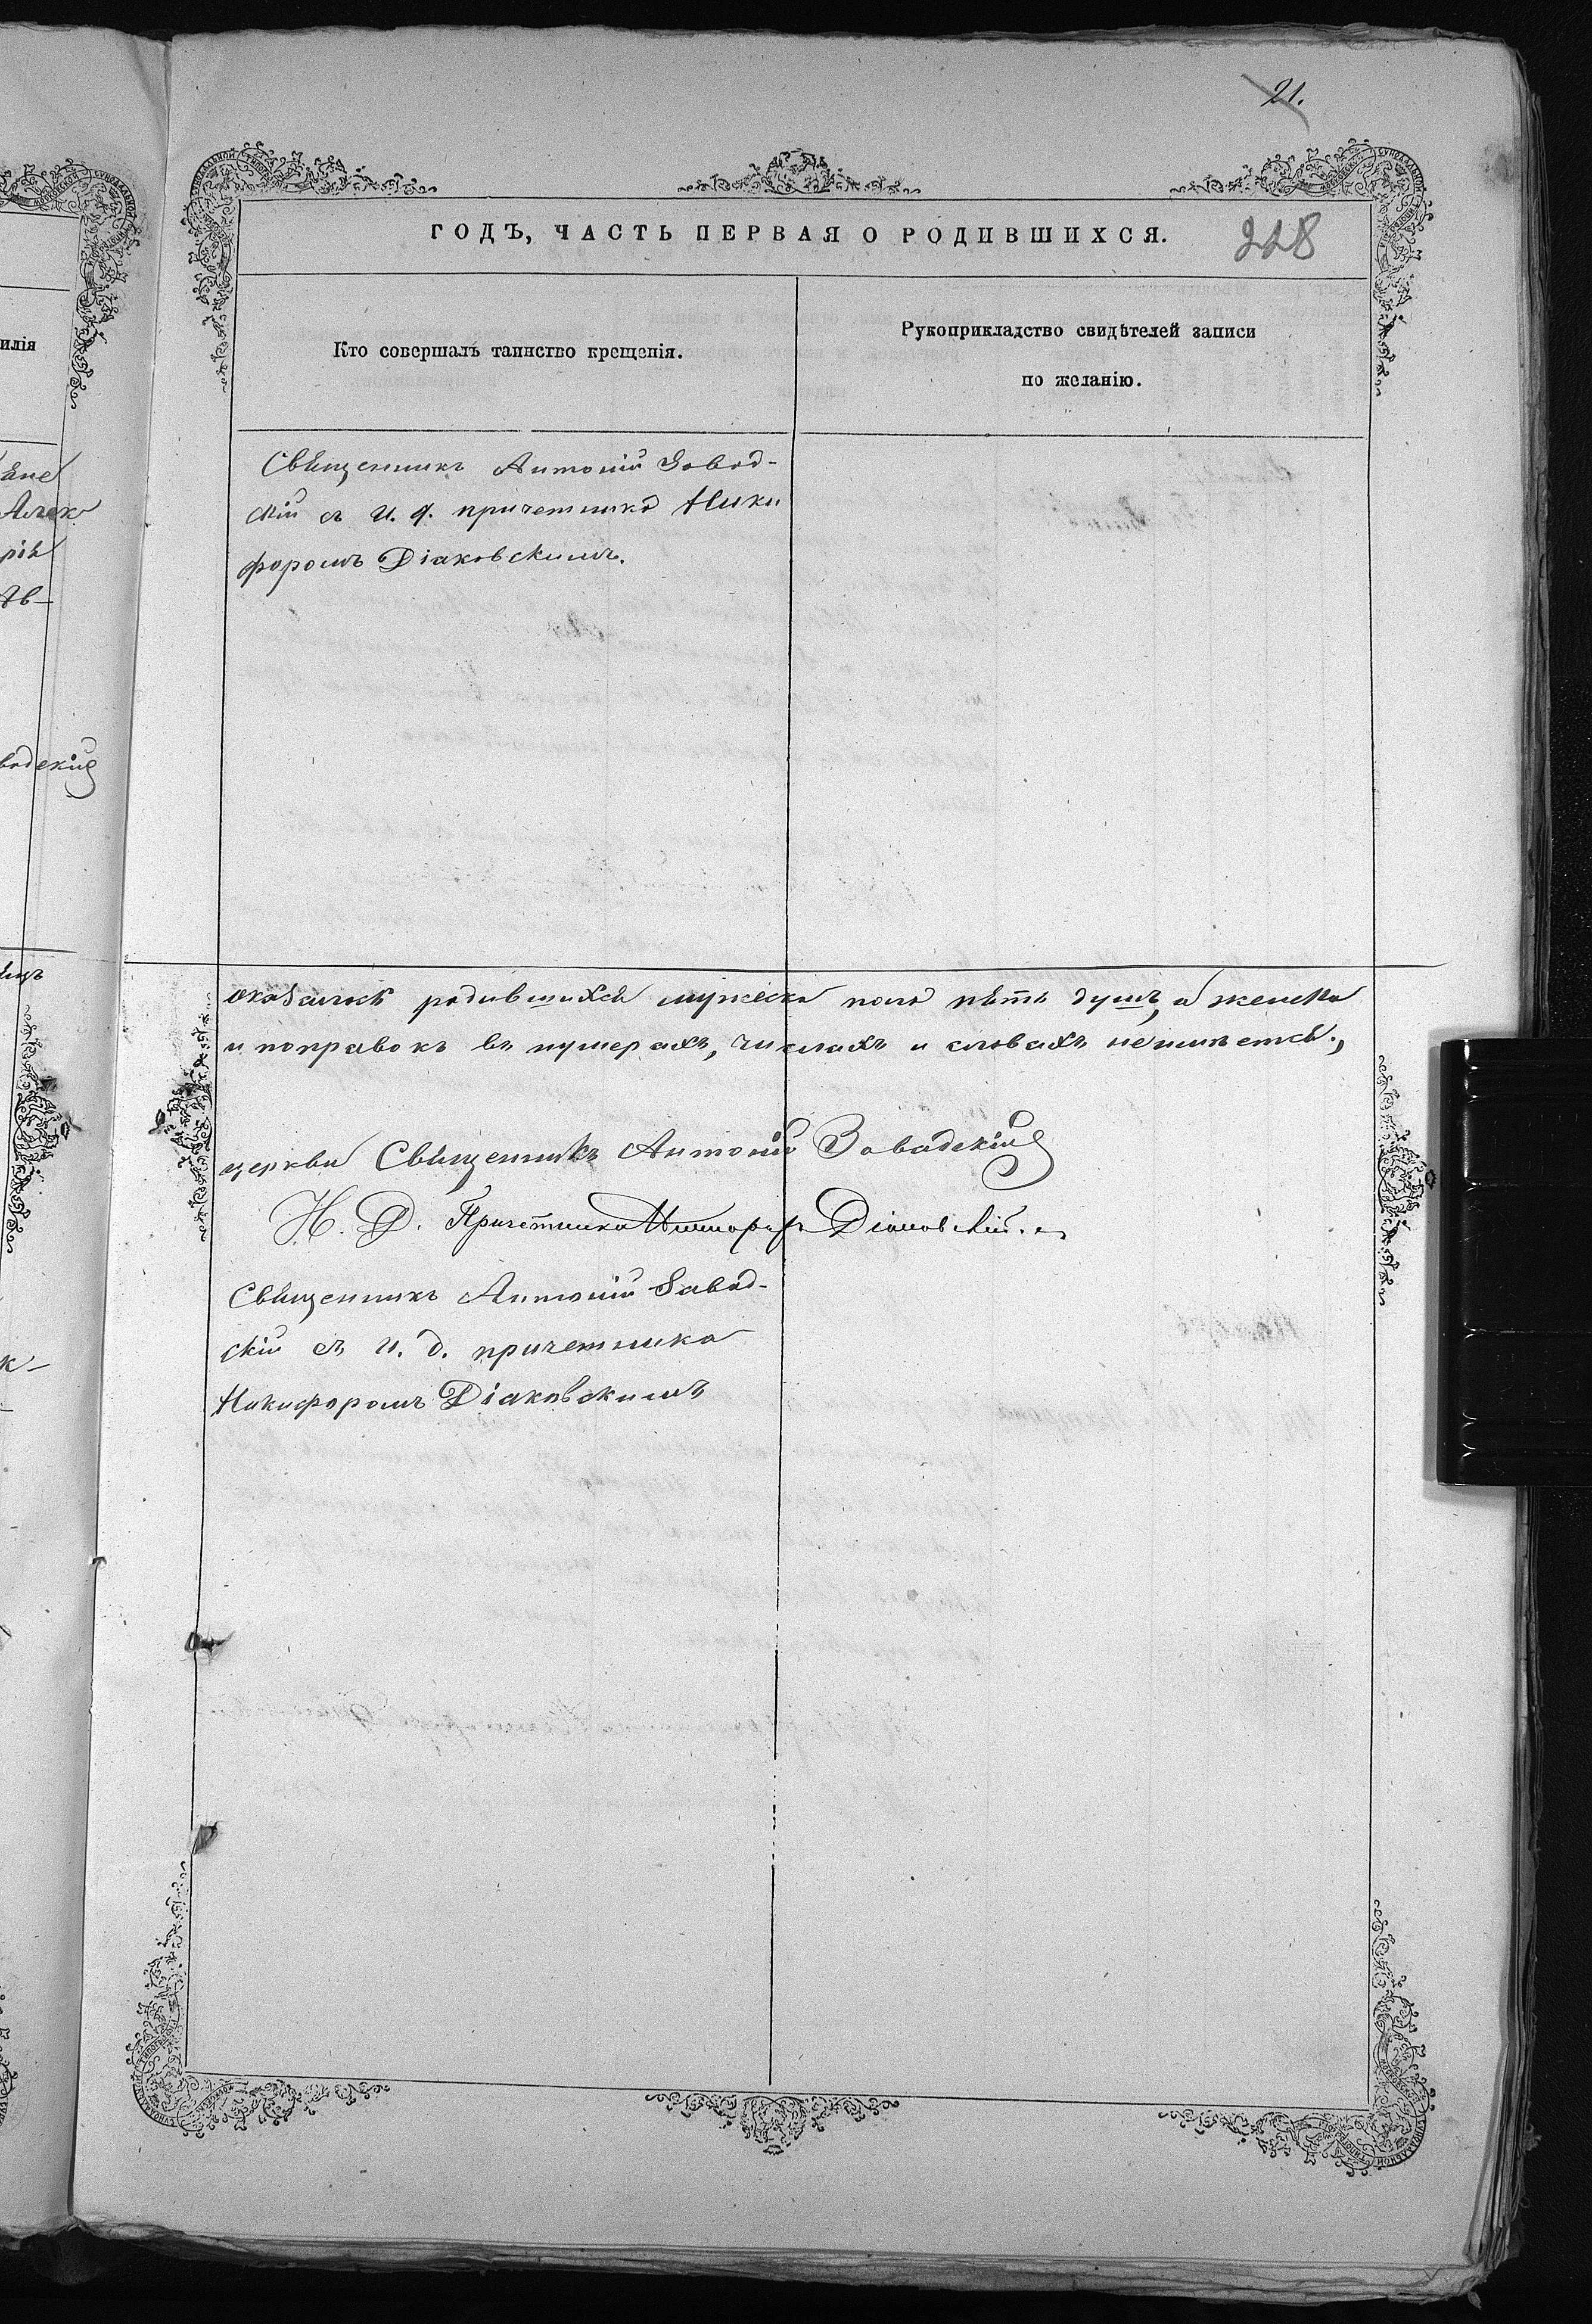 21.
ГОДЪ, ЧАСТЬ ПЕРВАЯ О РОДИВШИХСЯ.
228
Кто совершалъ таинство крещенія.
Рукоприкладство свидѣтелей записи
по желанію.
илія
Алек
водскій
Священникъ Антоній Завад-
скій съ и. д. причетника Ники
форомъ Діаковскимъ.
оказалось родившихся мужеска пола пять душъ, а женска
и поправокъ въ нумерахъ, числахъ и словахъ неимѣется.,
церкви Священникъ Антоній Завадскій
И. Д. Причетника Никифоръ Діаковскій.
Священникъ Антоній Завад-
скій съ и. д. причетника
Никифоромъ Діаковскимъ